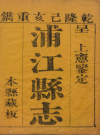 乾隆己亥重鐫
呈 上憲鑒定
浦江縣志
本縣藏板